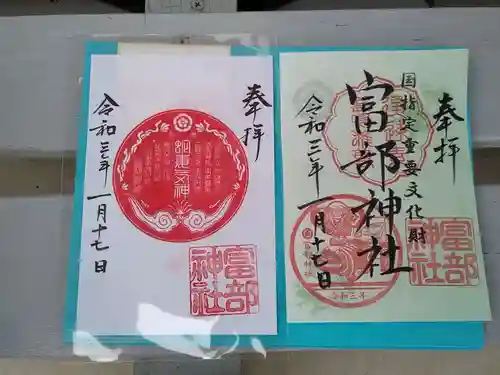 奉拝
蛇毒気神
令和三年一月十七日
富部神社
奉拝
国指定重要文化財
富部神社
令和三年一月十七日
富部神社
令和三年